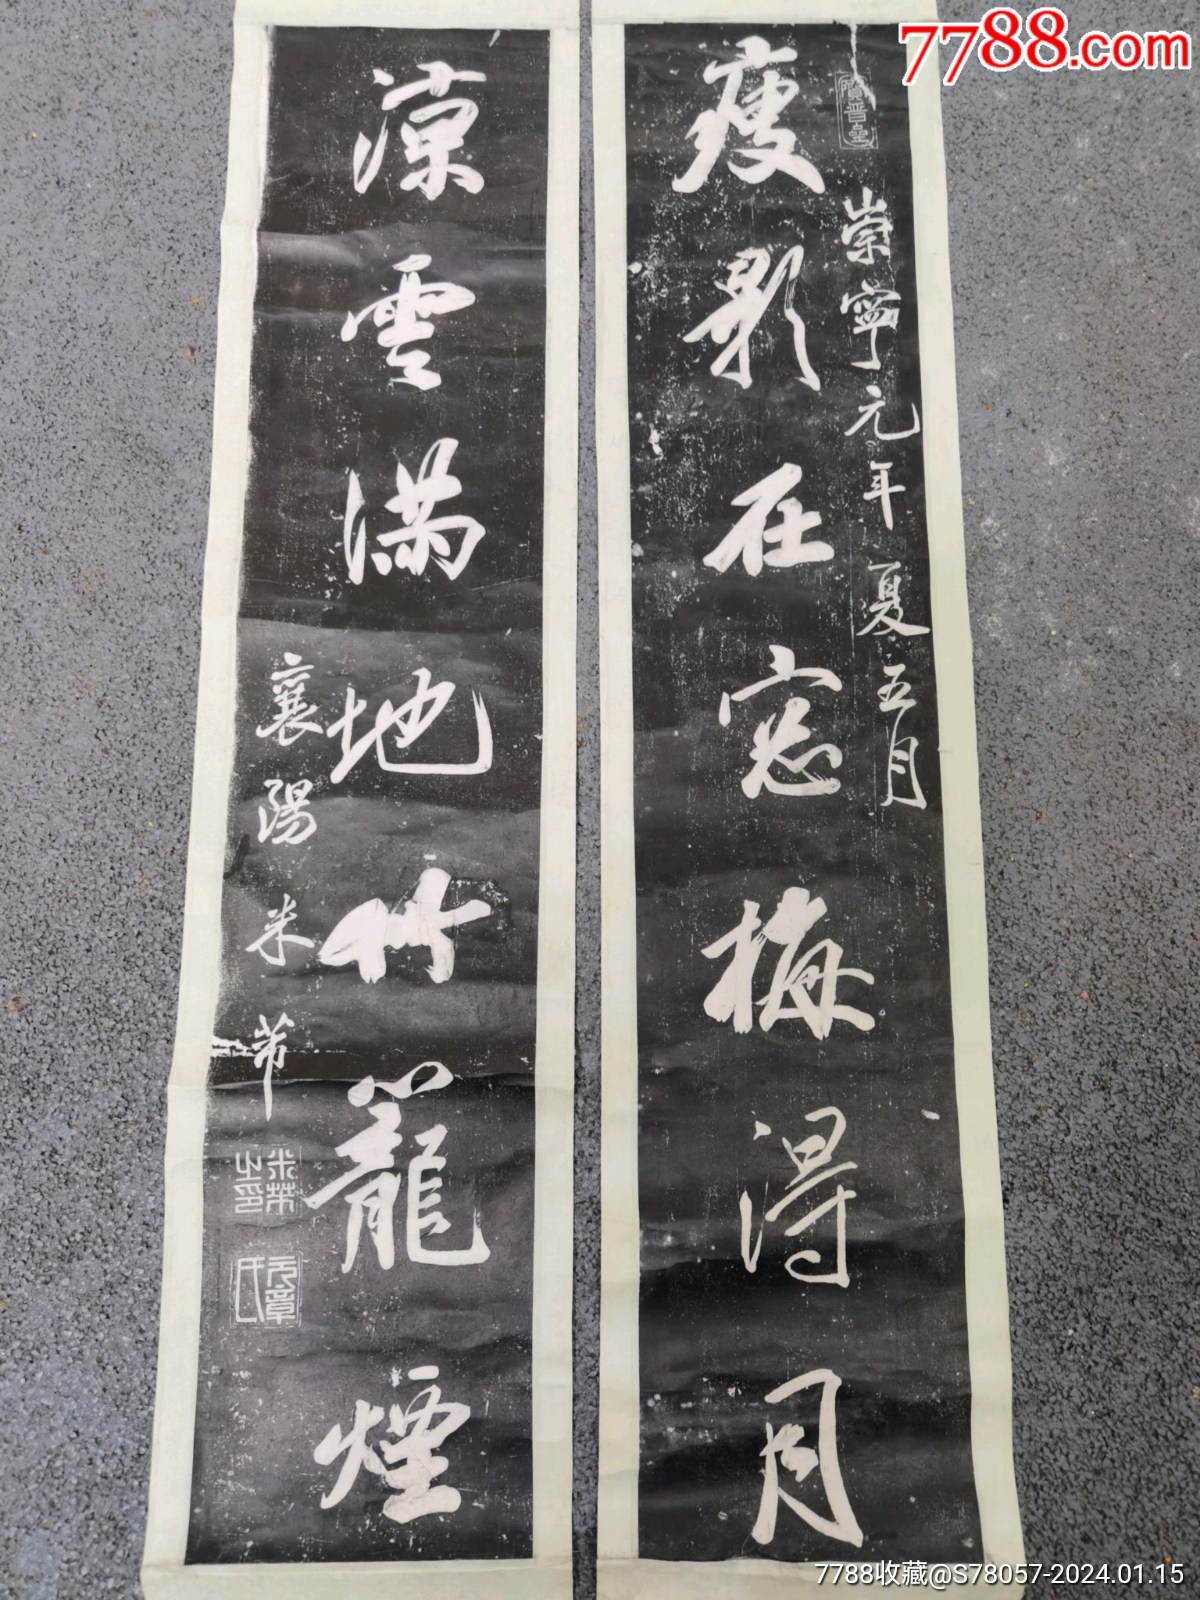 7788.com
寶晉齋
崇寧元年夏五月
瘦影在窓梅得月
涼雲滿地竹籠煙
襄陽米芾
米芾之印
元章氏
7788收藏@S78057-2024.01.15